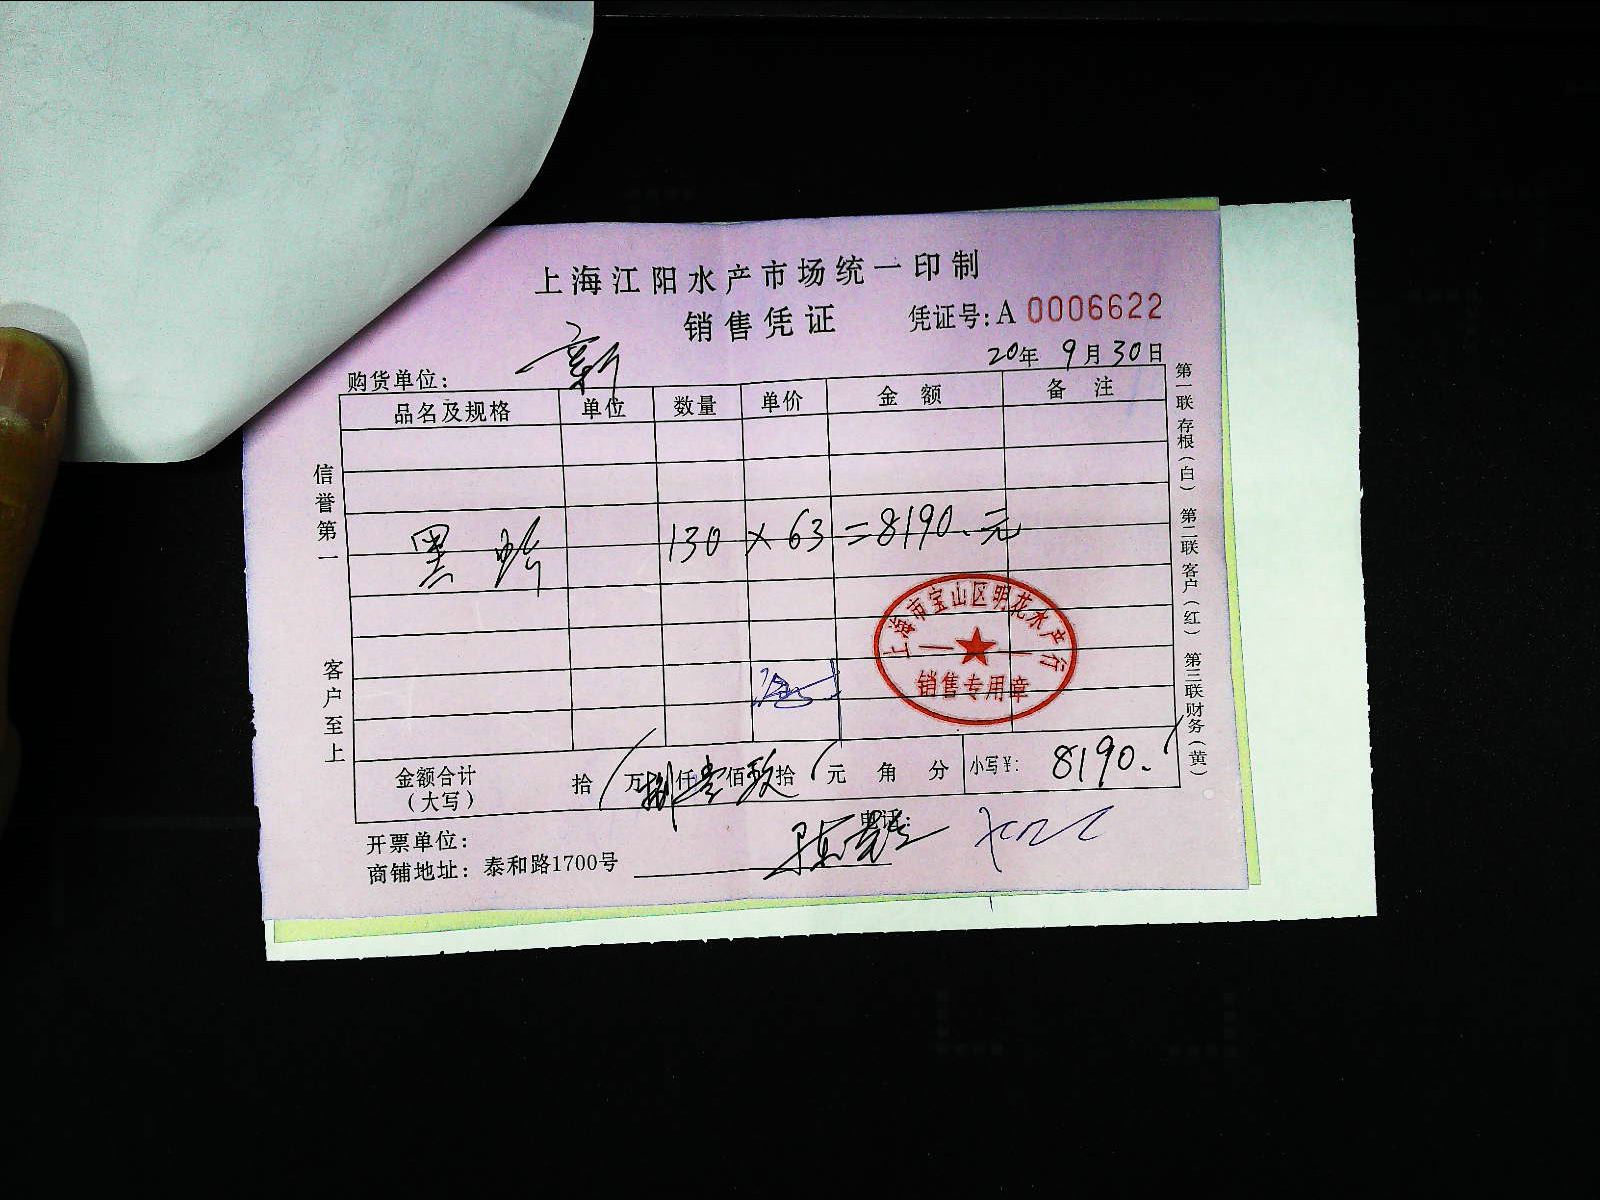 上海江阳水产市场统一印制
销售凭证 凭证号:A 0006622
20年 9月30日
购货单位: 新
品名及规格 单位 数量 单价 金额 备注
黑蛉 130 × 63 =8190.元
上海市宝山区明花水产行
销售专用章
金额合计(大写) 拾 / 万捌仟壹佰玖拾 / 元 角 分 小写¥: 8190.
开票单位: 电话:
商铺地址: 泰和路1700号
信誉第一
客户至上
第一联存根(白) 第二联客户(红) 第三联财务(黄)